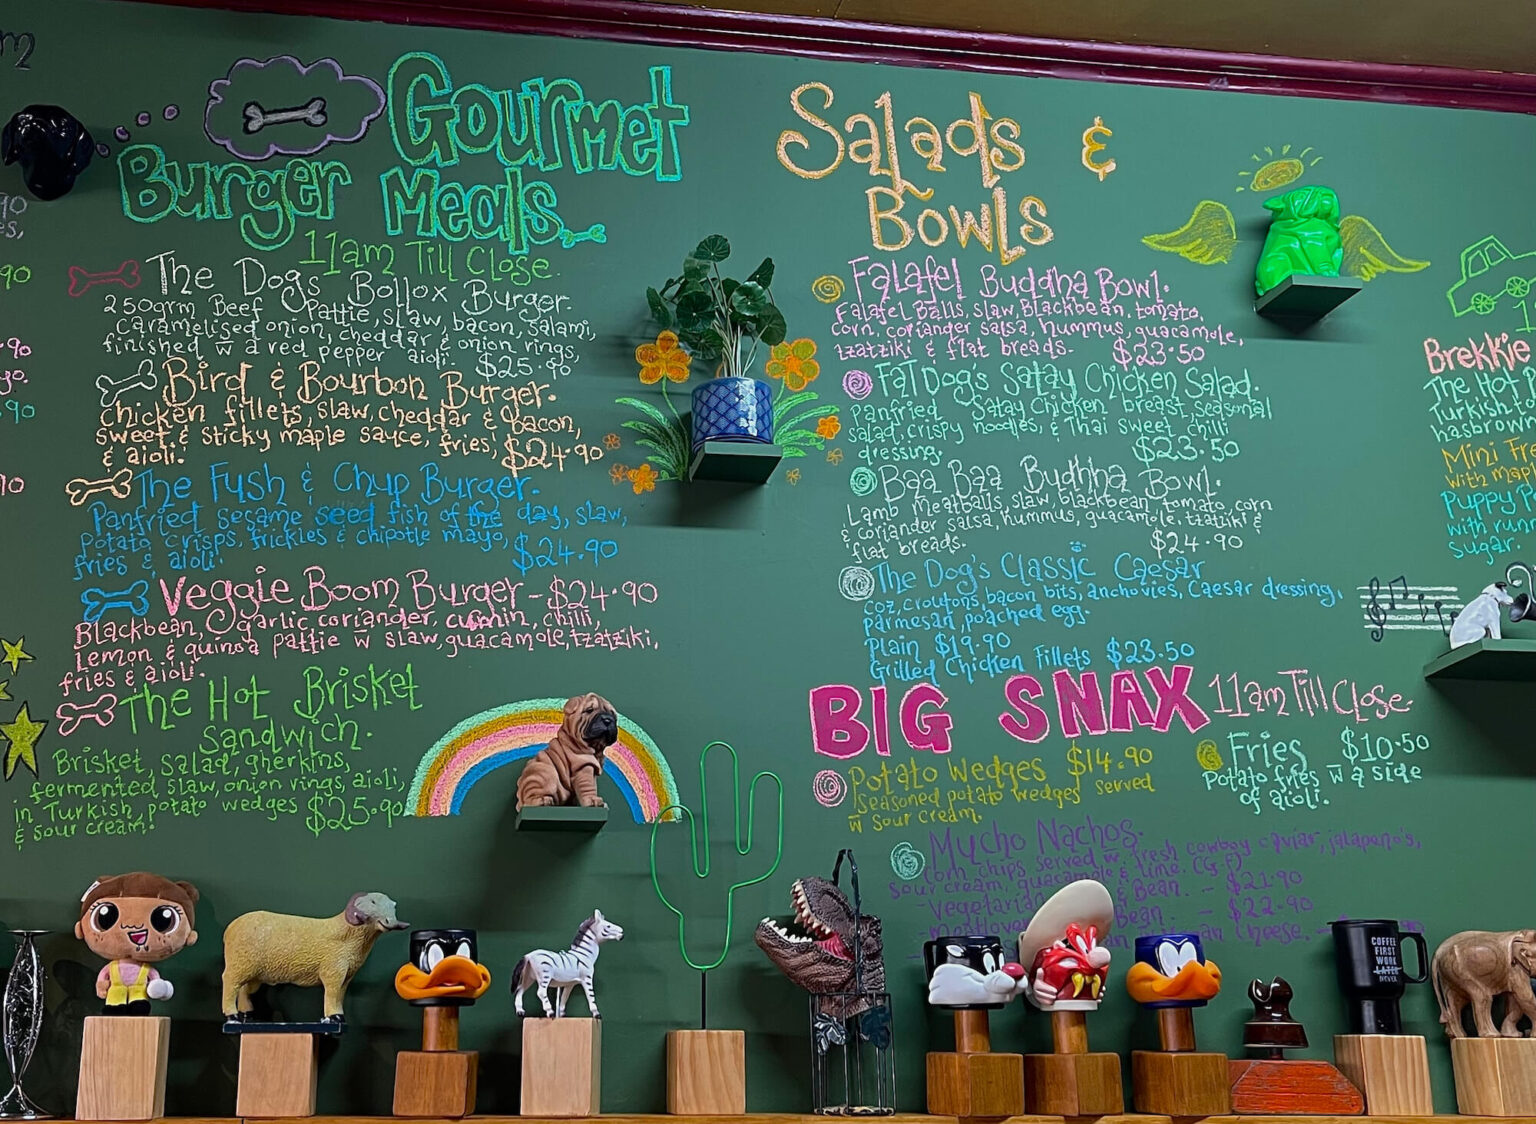 Gourmet
Burger Meals
11am Till Close.
The Dogs Bollox Burger.
250grm Beef Pattie, slaw, bacon, salami,
caramelised onion, cheddar & onion rings,
finished w̅ a red pepper aioli. $25.90
Bird & Bourbon Burger.
Chicken fillets, slaw, cheddar & bacon,
sweet & sticky maple sauce, fries,
& aioli. $24.90
The Fush & Chup Burger.
Panfried sesame seed fish of the day, slaw,
Potato crisps, frickles & chipotle mayo,
fries & aioli. $24.90
Veggie Boom Burger - $24.90
Blackbean, garlic, coriander, cumin, chilli,
Lemon & quinoa pattie w̅ slaw, guacamole, tzatziki,
fries & aioli.
The Hot Brisket
Sandwich.
Brisket, salad, gherkins,
fermented slaw, onion rings, aioli,
in Turkish, potato wedges
& sour cream. $25.90
Salads &
Bowls
Falafel Buddha Bowl.
Falafel Balls, slaw, Blackbean, tomato,
corn, coriander salsa, hummus, guacamole,
tzatziki & flat breads. $23.50
Fat Dog's Satay Chicken Salad.
Panfried Satay Chicken breast, seasonal
salad, crispy noodles, & Thai sweet chilli
dressing. $23.50
Baa Baa Budhha Bowl.
Lamb Meatballs, slaw, blackbean, tomato, corn
& coriander salsa, hummus, guacamole, tzatziki &
flat breads. $24.90
The Dog's Classic Caesar
Coz, croutons, bacon bits, anchovies, Caesar dressing,
parmesan, poached egg.
Plain $19.90
Grilled Chicken Fillets $23.50
BIG SNAX 11am Till Close.
Potato Wedges $14.90
Seasoned potato wedges served
w̅ sour cream.
Fries $10.50
Potato fries w̅ a side
of aioli.
Mucho Nachos.
Corn chips served w̅ fresh cowboy caviar, jalapeno's,
sour cream, guacamole & lime. (GF)
- Vegetarian Bean. - $21.90
Bean. - $22.90
Cheese. -
Brekkie
The Hot
Turkish
hasbrown
Mini
with
Puppy
with
sugar.
90
90
90
90
COFFEE
FIRST
WORK
LATER